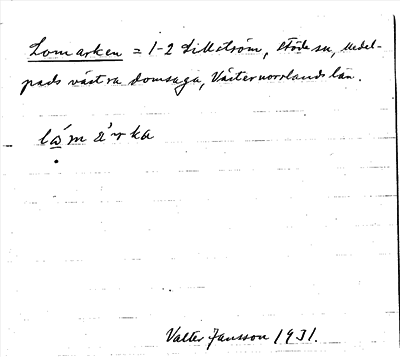 Lomarken = 1-2 Lillström, Stöde sn, Medel-
pads västra domsaga, Västernorrlands län.
Valter Jansson 1931.